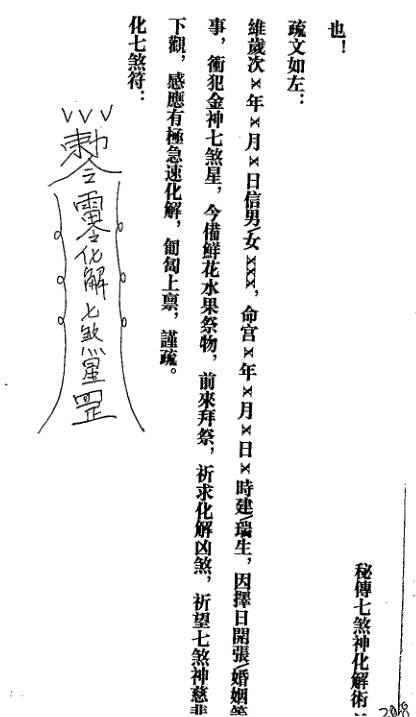 也！
疏文如左：
維歲次×年×月×日信男／女×××，命宮×年×月×日×時建／瑞生，因擇日開張／婚姻等
事，衝犯金神七煞星，今備鮮花水果祭物，前來拜祭，祈求化解凶煞，祈望七煞神慈悲
下觀，感應有極急速化解，匍匐上禀，謹疏。
化七煞符：
勅令雷令化解七煞星罡
秘傳七煞神化解術